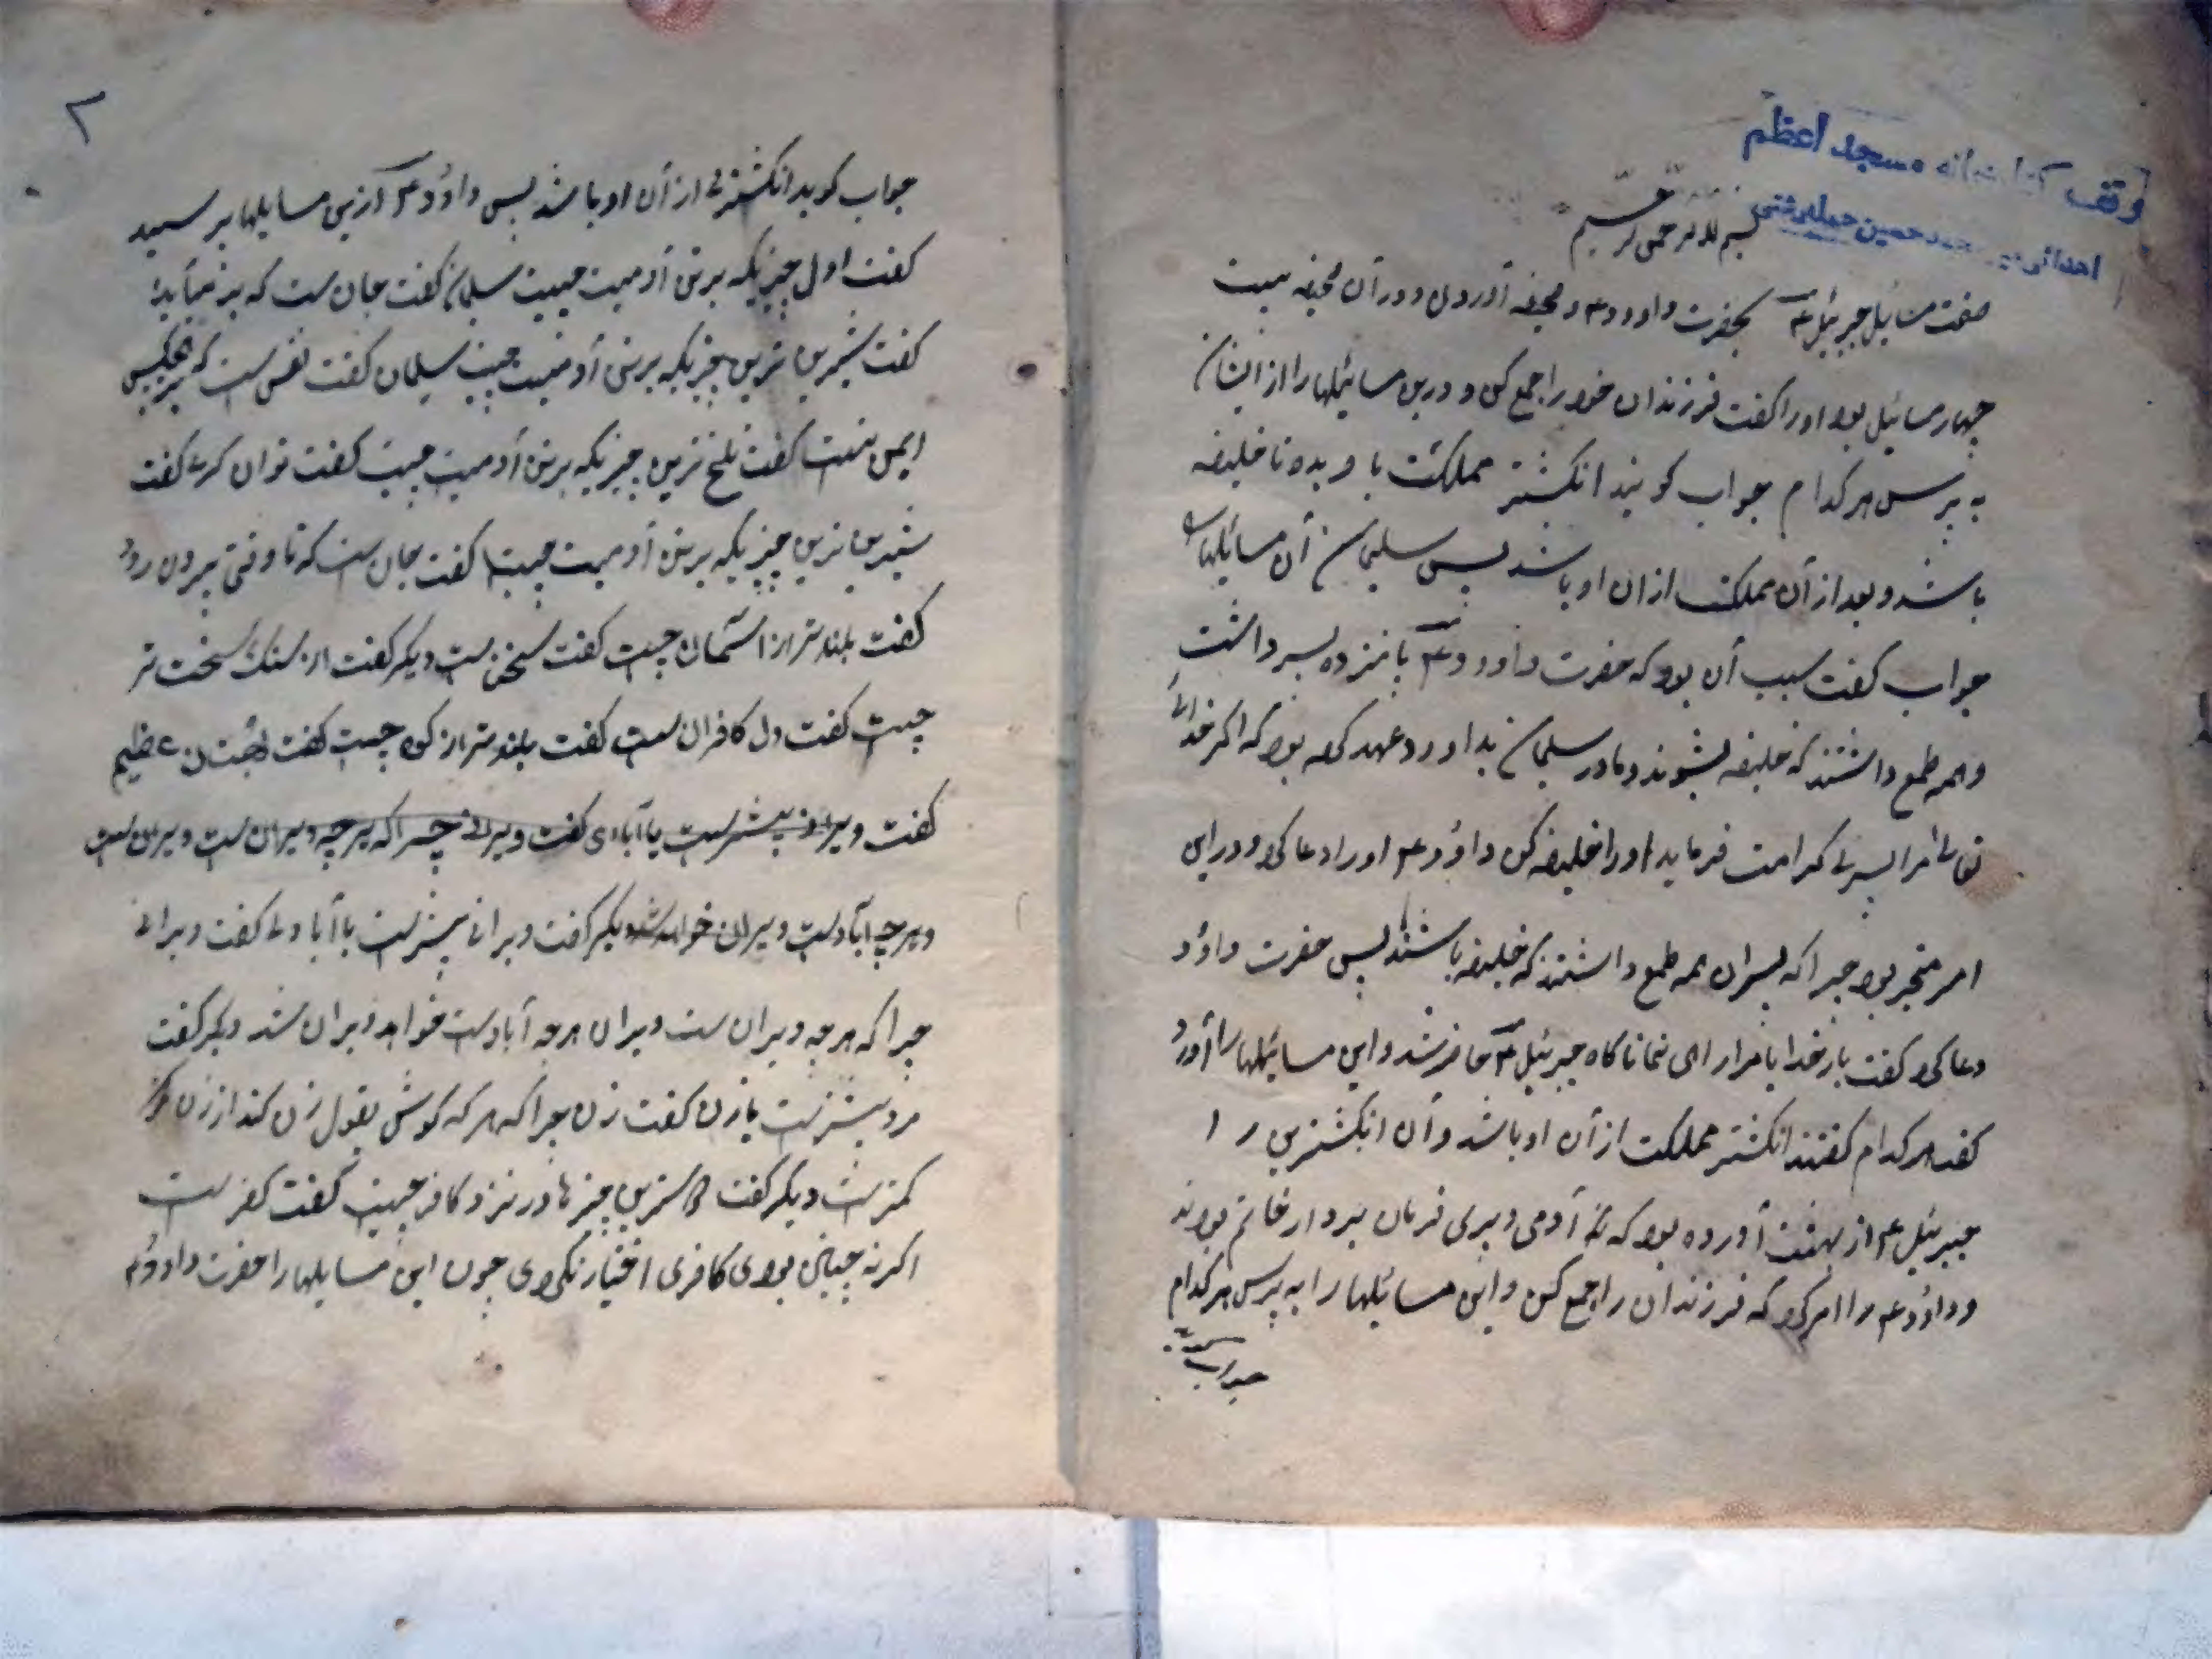 وقف کتابخانه مسجد اعظم
اهدائی حسین
بسم الله الرحمن الرحیم
صفت مسائیل جبرئیل ع بحضرت داوود ع و صحیفه آوردن و در آن صحیفه بیست
چهار مسائیل بود او را کفت فرزندان خود را جمع کن و درین مسائیلها را از ایشان
به پرس هر کدام جواب کویند انکشتر مملکت با و بده تا خلیفه
باشد و بعد از آن مملکت از ان او باشد پس سلیمان آن مسائیلها
جواب کفت سبب آن بود که حضرت داوود ع پانزده پسر داشت
و همه طمع داشتند که خلیفه بشوند و مادر سلیمان بداوود عهد کرده بود که اکر خدای
تعالی مرا پسری کرامت فرماید او را خلیفه کن داؤد ع او را دعا کرد و در این
امر متحیر بود چرا که پسران همه طمع داشتند که خلیفه باشند پس حضرت داؤد
دعا کرد کفت بار خدایا مرا راهی نما ناکاه جبرئیل ع حاضر شد و این مسائیلها را آورد
کفت هر کدام کفتند انکشتر مملکت از آن او باشد و آن انکشترین را
جبرئیل ع از بهشت آورده بود که آدمی و پری فرمان بردار خاتم بودند
و داؤد ع را امر کرد که فرزندان را جمع کن و این مسائیلها را به پرس هر کدام
جواب
۲
جواب کوید انکشتری از آن او باشد پس داؤد ع ازین مسایلها پرسید
کفت اول چیزیکه برتن آدمیت چیست سلیمان کفت جان ست که
کفت شیرین ترین چیزیکه برتن آدمیت چیست سلیمان کفت نفس ست که هیچکس
ایمن نیست کفت تلخ ترین چیزیکه برتن آدمیت چیست کفت کفت
شیرین ترین چیزیکه برتن آدمیت چیست کفت جان ست که تا وقتی بیرون رود
کفت بلند تر از آسمان چیست کفت سخن ست دیکر کفت از سنک سخت تر
چیست کفت دل کافران ست کفت بلند تر از کوه چیست کفت بهتان عظیم
کفت ویرانی بیشتر ست یا آبادی کفت ویرانی چرا که هرچه ویران ست ویران ست
و هرچه آباد ست ویران خواهد شد دیکر کفت ویرانی بیشتر ست یا آبادی کفت ویرانی
چرا که هرچه ویران ست ویران هرچه آباد ست خواهد ویران شد دیکر کفت
مرد بیشتر ست یا زن کفت زن چرا که هر که کوش بقول زن کند از زن
کمتر ست دیکر کفت چیزها در نزد کافر چیست کفت کفر ست
اکر نه چنانی بودی کافری اختیار نکردی چون این مسایلها را حضرت داوود ع